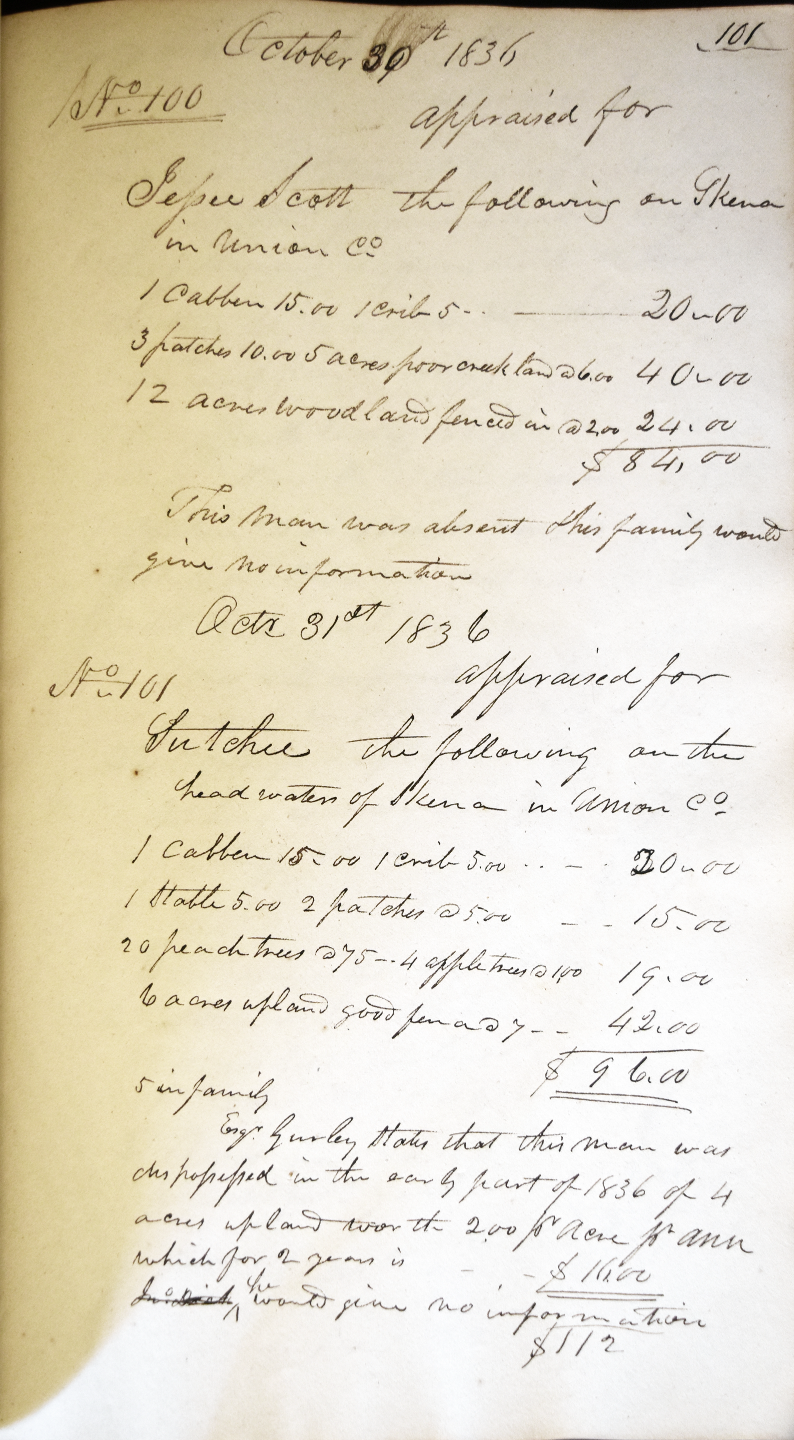 October 30th 1836
101
No. 100
appraised for
Jessee Scott the following on Skena
in Union Co
1 Cabben 15.00 1 crib 5 - - 20-00
3 patches 10.00 5 acres poor creek land @ 6.00 40-00
12 acres woodland fenced in @ 2.00 24.00
$84,00
This man was absent & his family would
give no information
Octr 31st 1836
No. 101
appraised for
Sutchee the following on the
head waters of Skena in Union Co
1 Cabben 15-00 1 crib 5.00 . . - . 20-00
1 Stable 5.00 2 patches @ 5.00 - - 15.00
20 peach trees @ 75 - - 4 apple trees @ 1.00 19.00
6 acres upland good fence @ 7 - - 42.00
$96.00
5 in family
Esqr. Gurley States that this man was
dispossessed in the early part of 1836 of 4
acres upland worth 2.00 pr Acre pr ann
which for 2 years is - - $16.00
he would give no information
$112